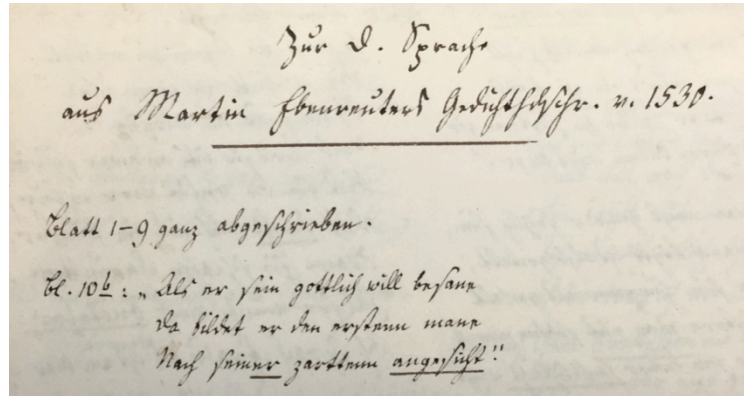 Zur d. Sprache
aus Martin Ebenreuters Gedichthdschr. v. 1530.
Blatt 1-9 ganz abgeschrieben.
Bl. 10b: „Als er sein gottlich will besane
Da bildet er den erstenn mane
Nach seiner zarttenn angesicht"